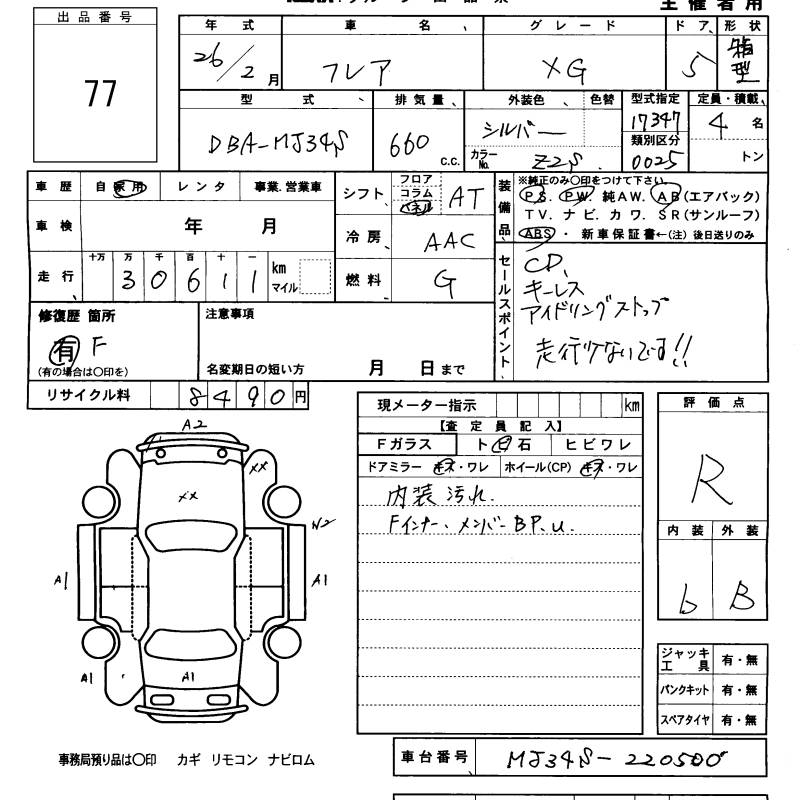 主催者用
出品番号
77
年式 車名、 グレード ドア、 形状
26/2月 フレア XG 5 箱型
型式、 排気量、 外装色 色替 型式指定 定員・積載、
DBA-MJ34S 660 c.c. シルバー 17347 4 名
カラーNo. Z2S 類別区分 0025 トン
車歴 自家用 レンタ 事業.営業車
車検 年 月
走行、 十万 万 千 百 十 一
3 0 6 1 1 km マイル
シフト、 フロア コラム パネル AT
冷房 AAC
燃料 G
装備品、
※純正のみ〇印をつけて下さい。
P.S. P.W. 純A.W. A.B(エアバッグ)
T.V. ナビ. カワ. S.R(サンルーフ)
ABS・ 新車保証書←(注) 後日送りのみ
セールスポイント、
CD、
キーレス
アイドリングストップ
走行少ないです!!
修復歴 箇所
有 F
(有の場合は〇印を)
注意事項
名変期日の短い方 月 日まで
リサイクル料 8 4 9 0 円
現メーター指示 km
【査定員記入】
Fガラス ト日石 ヒビワレ
ドアミラー キズ・ワレ ホイール(CP) キズ・ワレ
内装汚れ.
Fインナー、メンバーBP.u.
評価点
R
内装 外装
b B
A2
XX
XX
W2
A1
A1
A1
A1
ジャッキ工具 有・無
パンクキット 有・無
スペアタイヤ 有・無
事務局預り品は〇印 カギ リモコン ナビロム
車台番号 MJ34S-220500